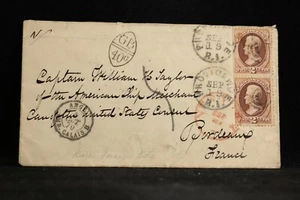 N.
GB
40c
Captain William H. Taylor
of the American Ship Merchant
Care of the United States Consul
Bordeaux
France
PROVIDENCE
SEP
R.I.
PROVIDENCE
SEP
R.I.
ANGL.
CALAIS